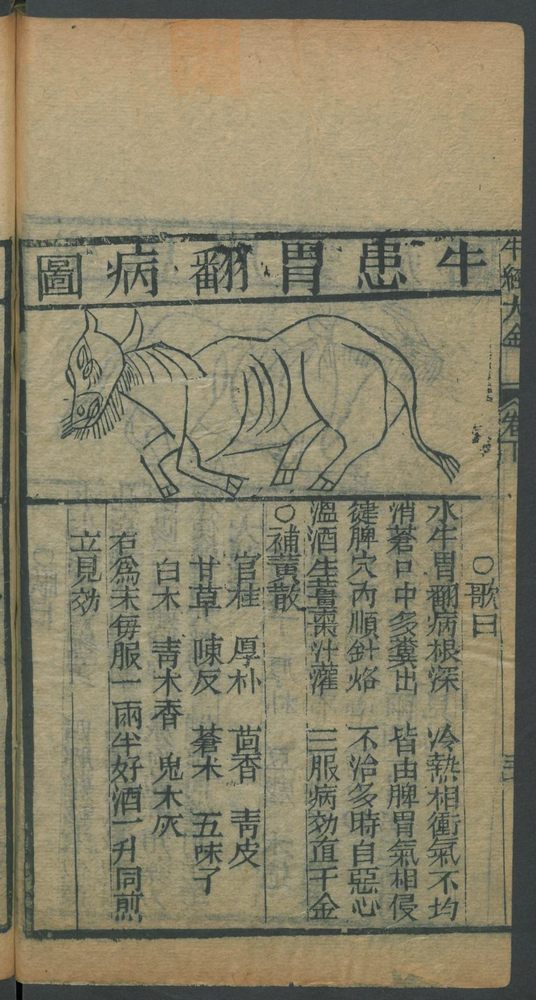 牛患胃翻病圖
牛經大全 卷下
○歌曰
水牛胃翻病根深 冷熱相衝氣不均
消蒼口中多糞出 皆由脾胃氣相侵
健脾穴內順針烙 不治多時自惡心
溫酒生薑棗汁灌 三服病効直千金
○補黃散
官桂 厚朴 茴香 靑皮
甘草 陳反 蒼木 五味子
白木 靑木香 鬼木灰
右爲末每服一兩半好酒一升同煎
立見効